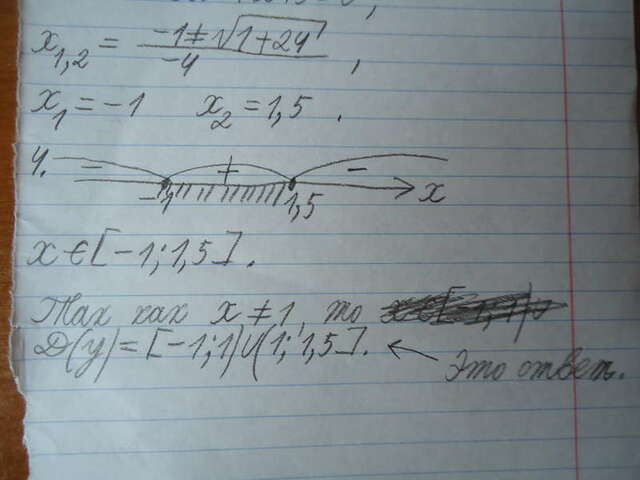 x₁,₂ = (-1±√(1+24))/(-4) ,
x₁ = -1 x₂ = 1,5 .
4. - + -
-1 1,5 x
x∈[-1;1,5].
Так как x≠1, то
D(y)=[-1;1)∪(1;1,5]. ← Это ответ.